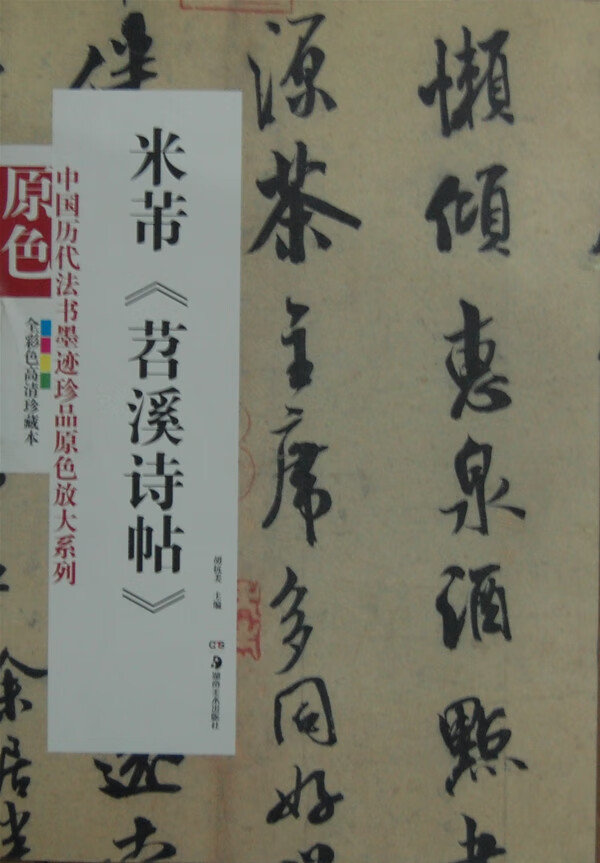 懒倾惠泉酒点
源茶主席多同好
米芾《苕溪诗帖》
胡紫美 主编
湖南美术出版社
中国历代法书墨迹珍品原色放大系列
原色
全彩色高清珍藏本
余居